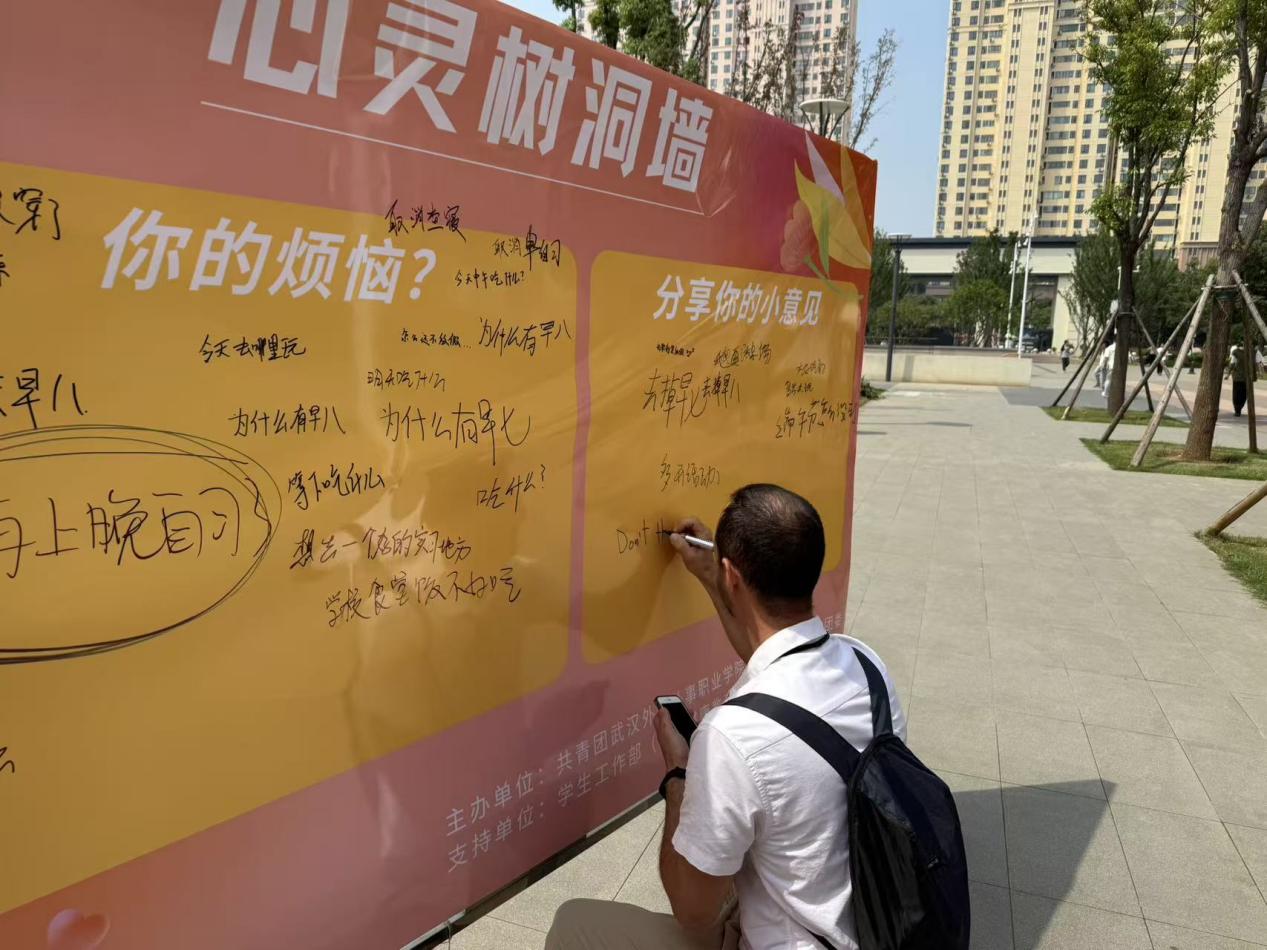 心灵树洞墙
你的烦恼?
取消查寝
取消早自习
今天中午吃什么?
穿了
今天去哪里玩
为什么有早八
明天吃什么
早八
为什么有早八
为什么有早七
等下吃什么
吃什么?
上晚自习
想去一个
的实习地方
学校食堂饭不好吃
分享你的小意见
去掉早七
去掉早八
多开活动
Don't
主办单位:共青团武汉外
事职业学院
团委
支持单位:学生工作部(